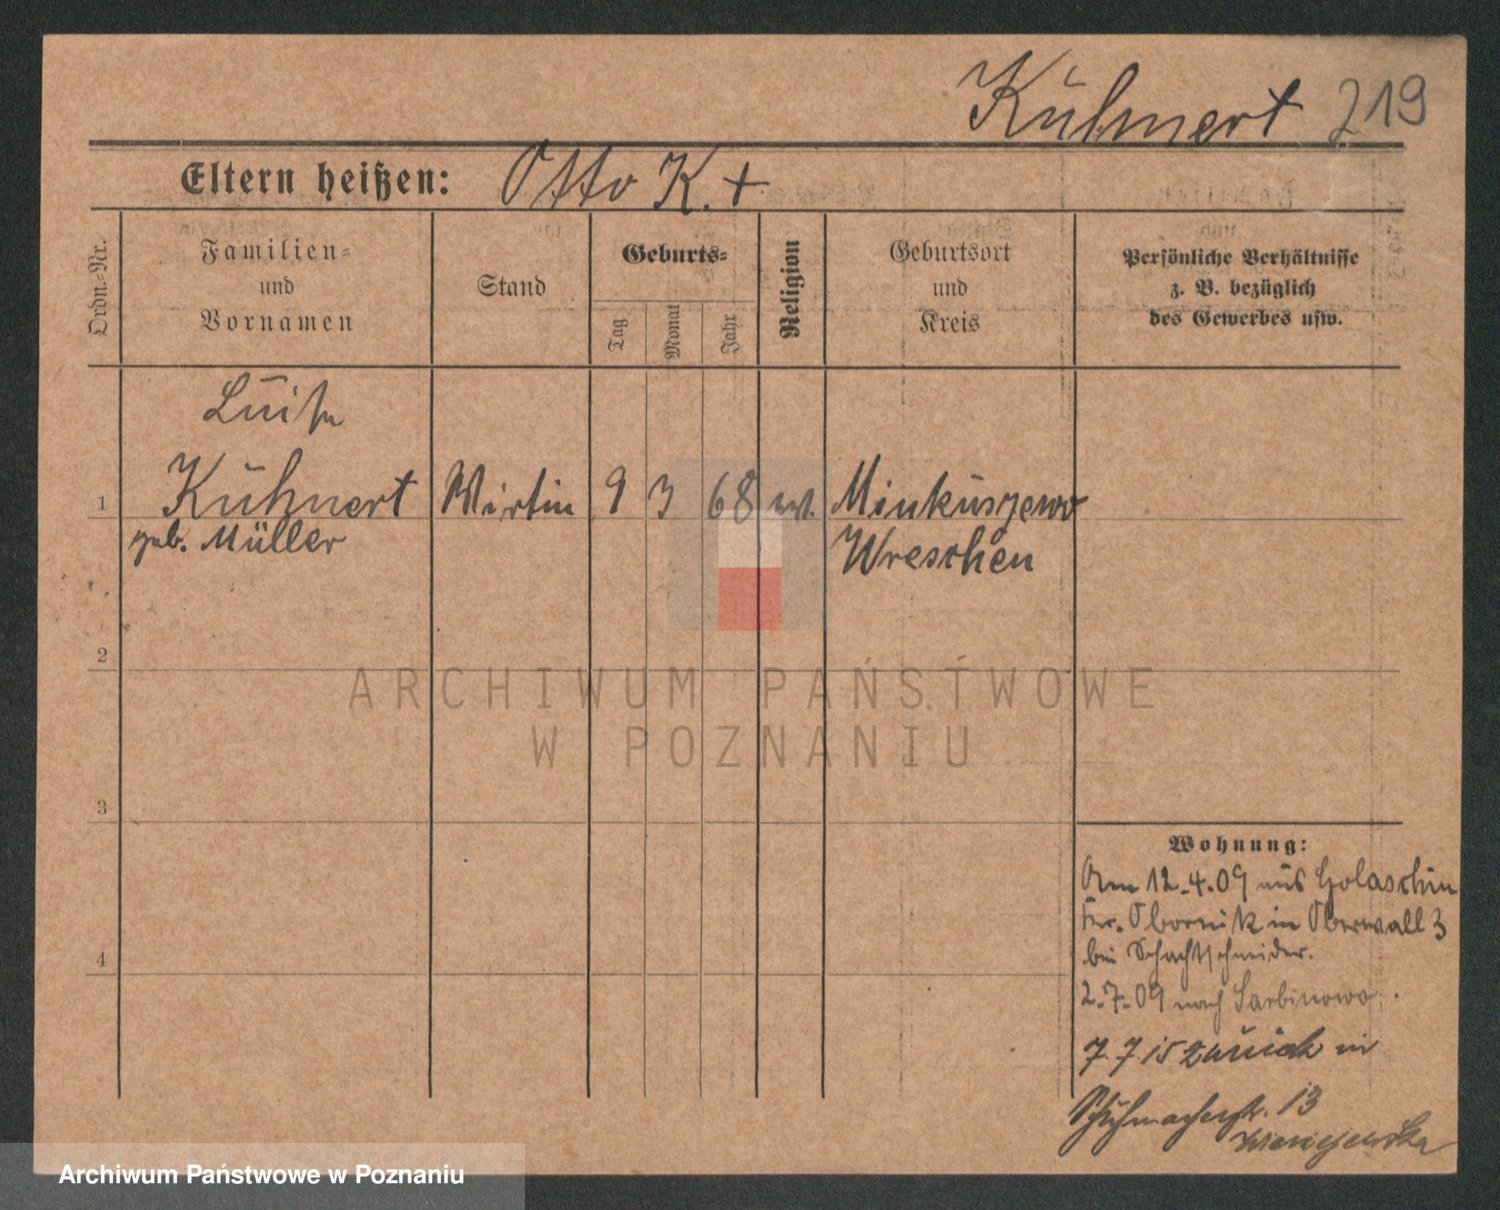 Kühnert 219
Eltern heißen: Otto K. +
Ordn.-Nr.
Familien-
und
Vornamen
Stand
Geburts-
Tag
Monat
Jahr
Religion
Geburtsort
und
Kreis
Persönliche Verhältnisse
z. B. bezüglich
des Gewerbes usw.
Luise
1 Kühnert Wirtin 9 3 68 ev. Minkuszewo
geb. Müller Wreschen
2
ARCHIWUM PAŃSTWOWE
W POZNANIU
3
Wohnung:
Am 12.4.09 aus Golaschin
Kr. Obornik in Oberwall 3
bei Schachtschneider.
4
2.7.09 nach Sarbinowo.
7 7 15 zurück in
Schuhmacherstr. 13
Archiwum Państwowe w Poznaniu